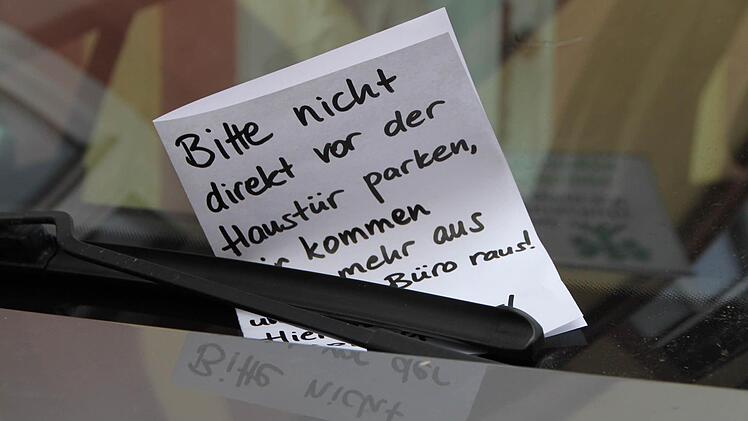 Bitte nicht
direkt vor der
Haustür parken,
kommen
mehr aus
Büro raus!
Bitte nicht